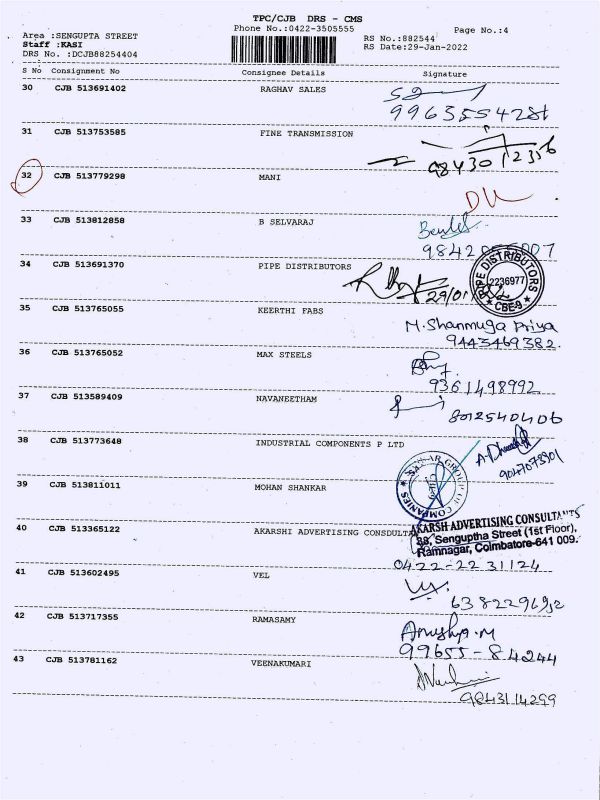 TPC/CJB DRS - CMS
Phone No.:0422-3505555
Page No.:4
Area :SENGUPTA STREET
Staff :KASI
DRS No. :DCJB88254404
RS No.:882544
RS Date:29-Jan-2022
S No Consignment No Consignee Details Signature
30 CJB 513691402 RAGHAV SALES
31 CJB 513753585 FINE TRANSMISSION
98430 12356
32 CJB 513779298 MANI
33 CJB 513812858 B SELVARAJ
34 CJB 513691370 PIPE DISTRIBUTORS
29/01
PIPE DISTRIBUTORS
2236977
CBE-9
35 CJB 513765055 KEERTHI FABS
M. Shanmuga Priya
9443469382.
36 CJB 513765052 MAX STEELS
9361498992
37 CJB 513589409 NAVANEETHAM
8012540406
38 CJB 513773648 INDUSTRIAL COMPONENTS P LTD
GROUP OF COMPANIES
39 CJB 513811011 MOHAN SHANKAR
40 CJB 513365122 AKARSHI ADVERTISING CONSDULTA
AKARSH ADVERTISING CONSULTANTS
38, Senguptha Street (1st Floor),
Ramnagar, Coimbatore-641 009.
0422-2231124
41 CJB 513602495 VEL
42 CJB 513717355 RAMASAMY
Anushya.M
99655-84244
43 CJB 513781162 VEENAKUMARI
9843114299